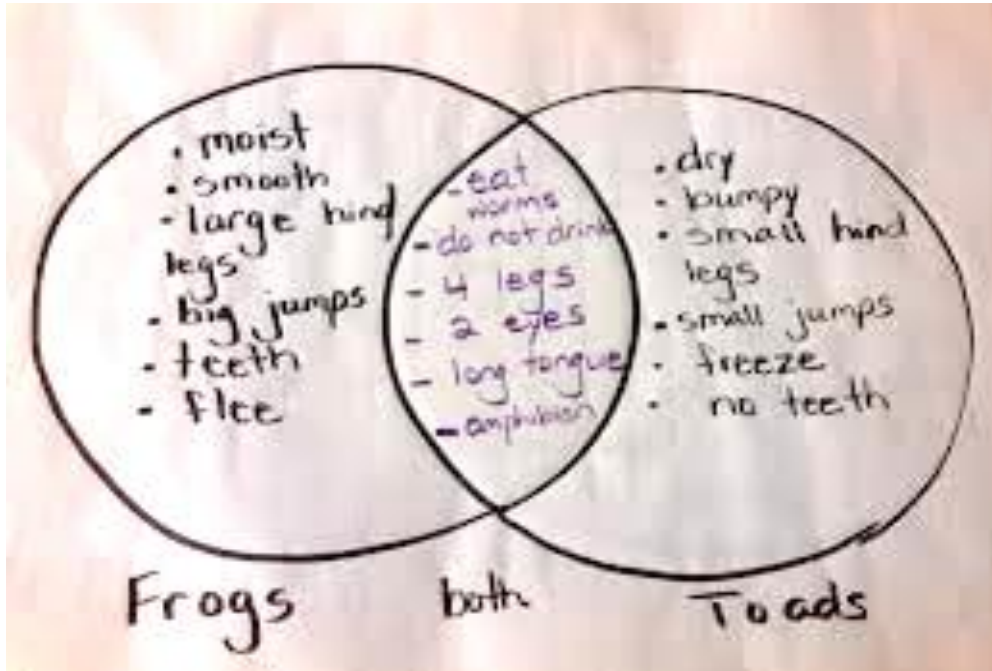 • moist
• smooth
- large hind
legs
- big jumps
- teeth
- flee
- eat
worms
- do not drink
- 4 legs
- 2 eyes
- long tongue
- amphibian
• dry
• bumpy
• small hind
legs
• small jumps
• freeze
• no teeth
Frogs
both
Toads